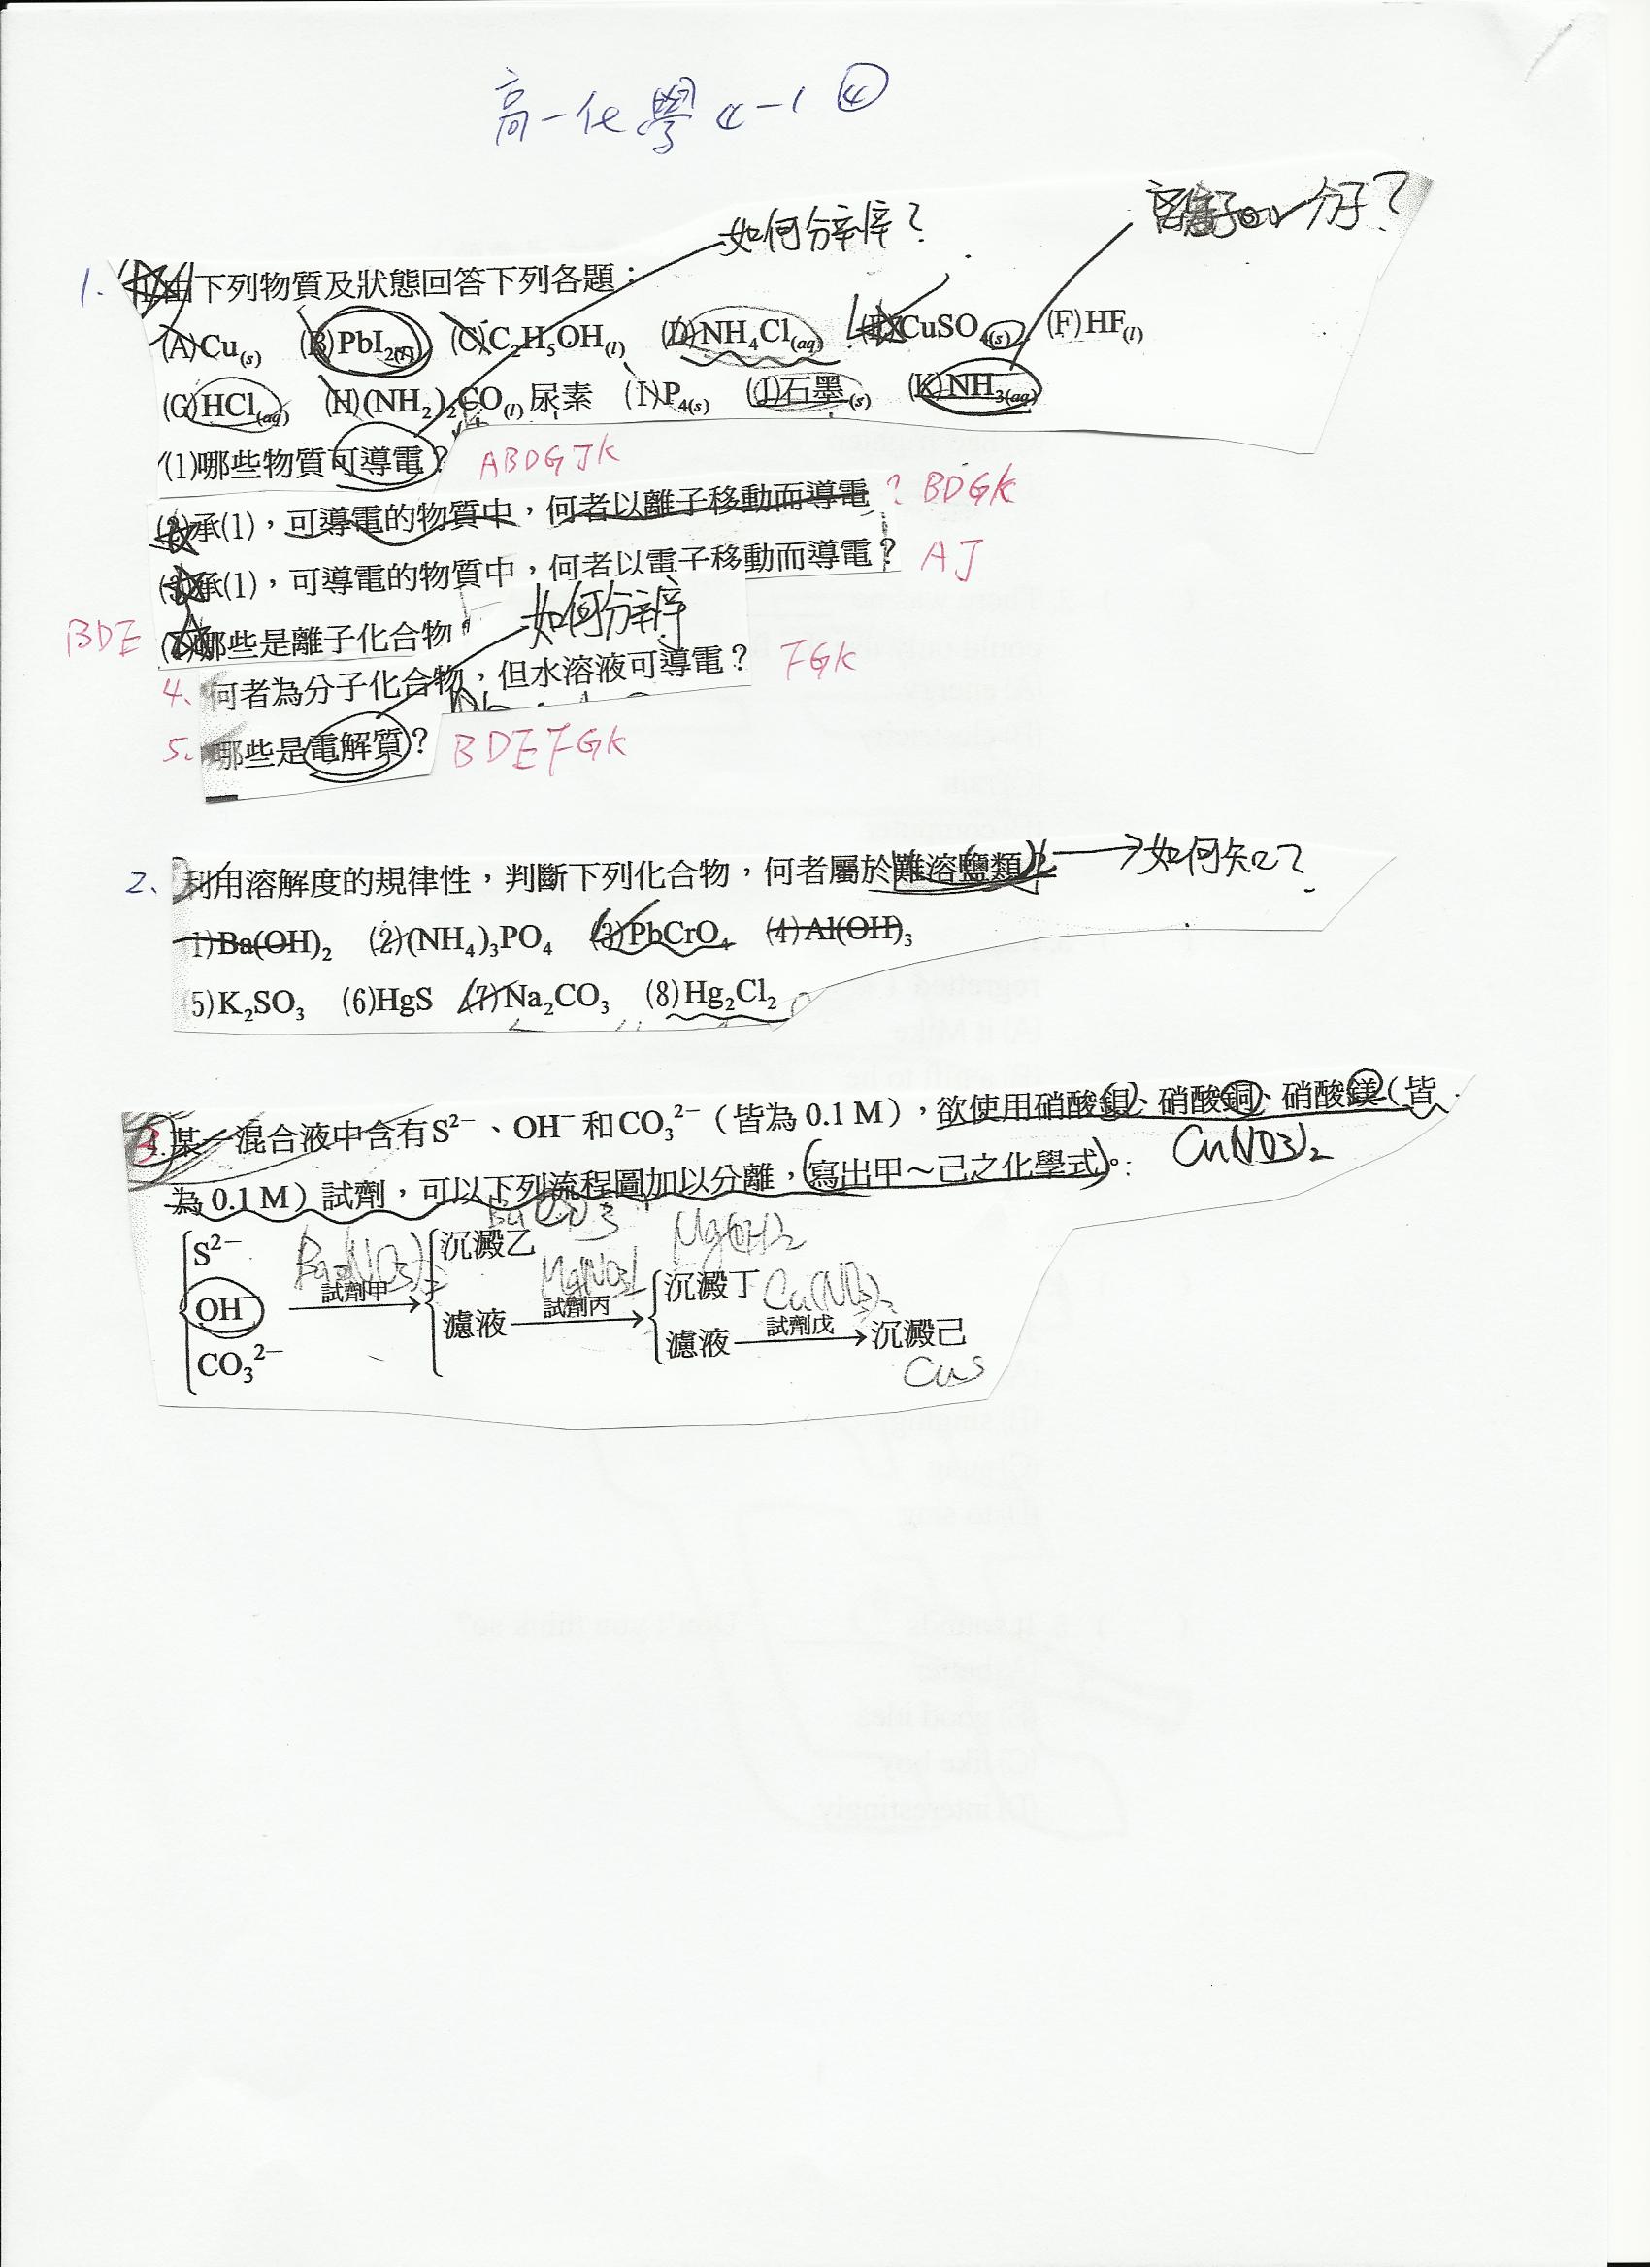 高一化學 4-1 ④
離子or分子?
如何分辨?
1. 由下列物質及狀態回答下列各題:
(A)Cu(s) (B)PbI2(l) (C)C2H5OH(l) (D)NH4Cl(aq) (E)CuSO4(s) (F)HF(l)
(G)HCl(aq) (H)(NH2)2CO(l)尿素 (I)P4(s) (J)石墨(s) (K)NH3(aq)
(1)哪些物質可導電? ABDGJK
(2)承(1),可導電的物質中,何者以離子移動而導電? BDGK
(3)承(1),可導電的物質中,何者以電子移動而導電? AJ
如何分辨
BDE 哪些是離子化合物
4、何者為分子化合物,但水溶液可導電? FGK
5、哪些是電解質? BDEFGK
2、利用溶解度的規律性,判斷下列化合物,何者屬於難溶鹽類? →如何知?
(1)Ba(OH)2 (2)(NH4)3PO4 (3)PbCrO4 (4)Al(OH)3
(5)K2SO3 (6)HgS (7)Na2CO3 (8)Hg2Cl2
3.某一混合液中含有S2−、OH−和CO32−(皆為0.1 M),欲使用硝酸鋇、硝酸銅、硝酸鎂(皆
Cu(NO3)2
為0.1 M)試劑,可以下列流程圖加以分離,(寫出甲~己之化學式)。
BaCO3 Mg(OH)2
S2− Ba(NO3)2 沉澱乙 Mg(NO3)2 沉澱丁 Cu(NO3)2
OH− 試劑甲 濾液 試劑丙 濾液 試劑戊 沉澱己
CO32− CuS